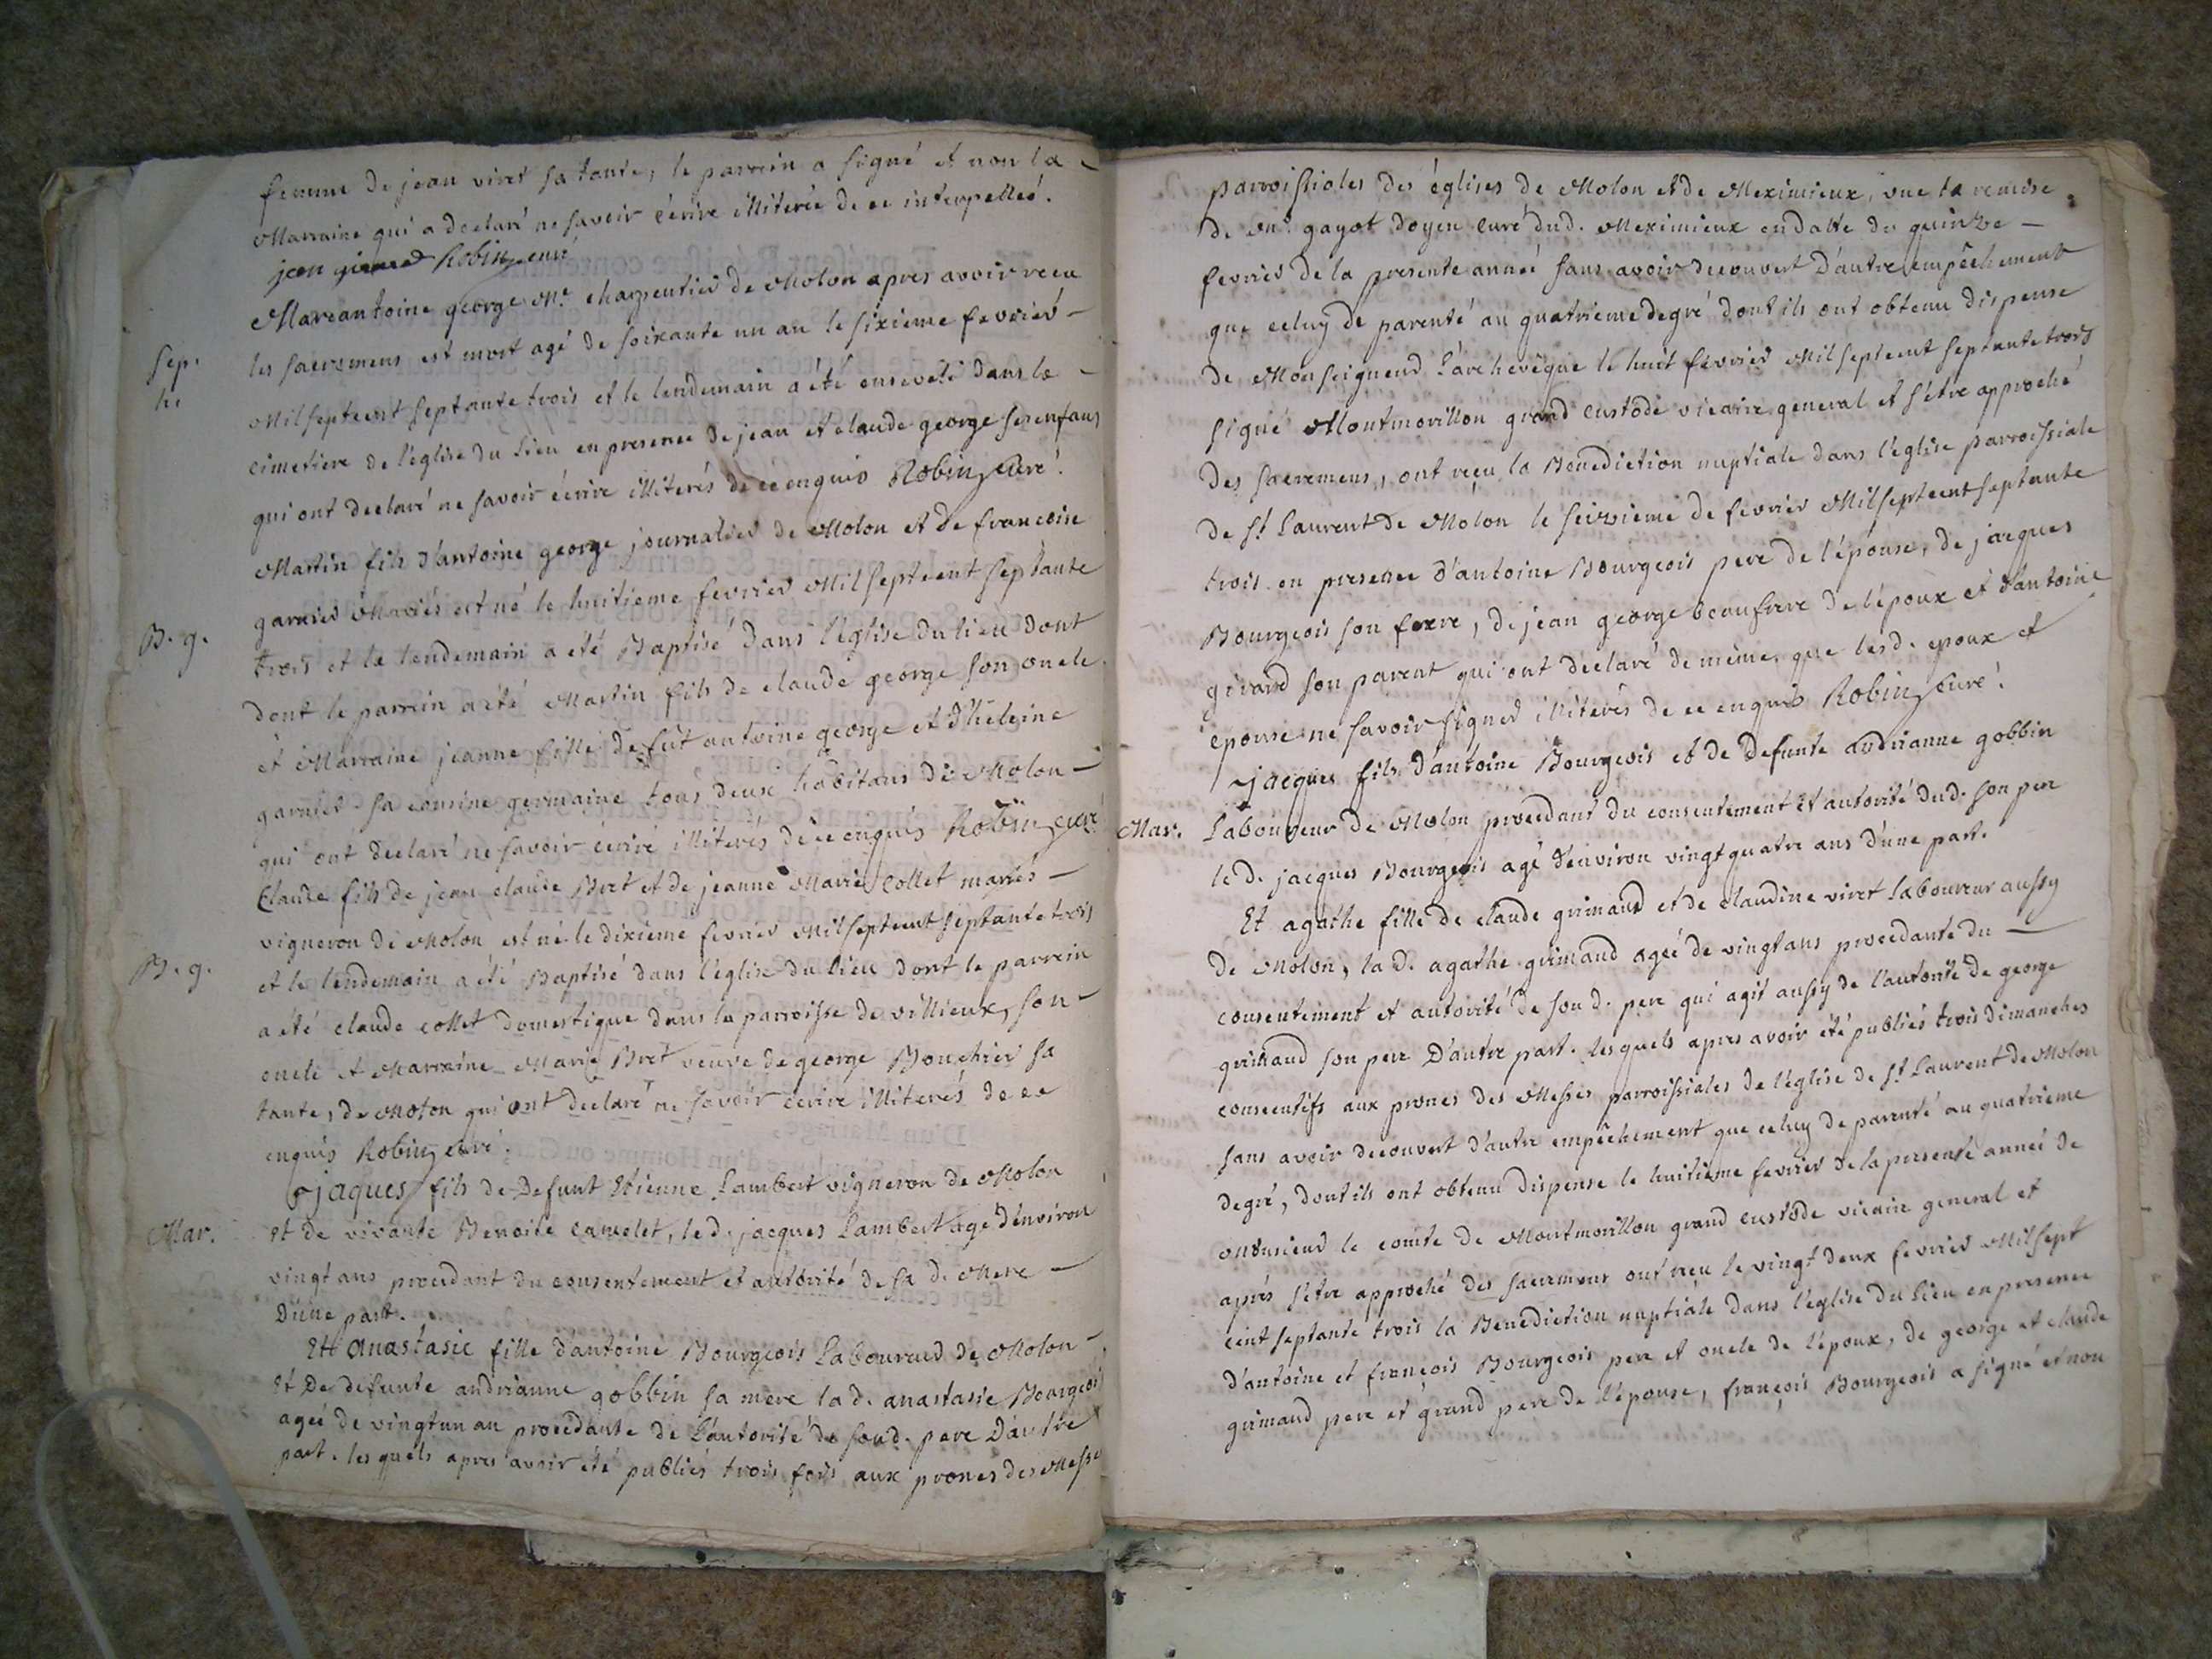 femme de jean vivet sa tante, le parrein a signé et non la
Marraine qui a declaré ne savoir écrire illiterée de ce interpellée.
jean girand Robin curé
Marcantoine george Me. charpentier de Molon apres avoir recu
Sep. h. les sacremens est mort agé de soixante un an le sixieme fevrier
Mil septcent septante trois et le lendemain a été enseveli dans le
cimetiere de l'église du lieu en presence de jean et claude george ses enfans
qui ont declaré ne savoir écrire illiterés de ce enquis Robin curé.
Martin fils d'antoine george journalier de Molon et de francoise
garnier Mariés est né le huitieme fevrier Mil septcent septante
B. g. trois et le lendemain a été Baptisé dans l'église du lieu dont
dont le parrein a été Martin fils de claude george son oncle
et Marraine jeanne fille de fût antoine george et d'heleine
garnier sa cousine germaine tous deux habitans de Molon
qui ont declaré ne savoir écrire illiterés de ce enquis Robin curé
Claude fils de jean claude Bret et de jeanne Marie Collet mariés
vigneron de Molon est né le dixieme fevrier Mil septcent septante trois
B. g. et le lendemain a été Baptisé dans l'église du lieu dont le parrein
a été claude collet domestique dans la parroisse de villieux, son
oncle et Marraine Marie Bret veuve de george Bouchier sa
tante, de Molon qui ont declaré ne savoir écrire illiterés de ce
enquis Robin curé.
jaques fils de Defunt Etienne Lambert vigneron de Molon
Mar. Et de vivante Benoite camelet, le d. jacques Lambert agé d'environ
vingt ans procedant du consentement et autorité de sa d. Mere
D'une part.
Et Anastasie fille d'antoine Bourgeois Laboureur de Molon
Et De defunte andrianne gobbin sa mere la d. anastasie Bourgeois
ageé de vingtun an procedante de L'autorité de son d. pere D'autre
part. les quels apres avoir été publiés trois fois aux prones des Messes
parroissiales des églises de Molon et de Meximieux, vue la remise
de Mr. gayot doyen curé dud. Meximieux en datte du quinze
fevrier de la presente année sans avoir decouvert d'autre empêchement
que celuy de parenté au quatrieme degré dont ils ont obtenu dispense
de Monseigneur L'archevêque le huit fevrier Mil septcent septante trois
signé Montmorillon grand custode vicaire general et s'étre approché
des sacremens, ont reçu la Benediction nuptiale dans l'église parroissiale
de St. Laurent de Molon le seizieme de fevrier Mil septcent septante
trois en presence d'antoine Bourgeois pere de l'épouse, de jacques
Bourgeois son frere, de jean george beaufrere de l'époux et d'antoine
girand son parent qui ont declaré de même que lesd. epoux et
epouse ne savoir signer illiterés de ce enquis Robin curé.
jacques fils d'antoine Bourgeois et de Defunte andrianne gobbin
Mar. Laboureur de Molon procedant du consentement et autorité dud. son pere
le d. jacques Bourgeois agé d'environ vingt quatre ans d'une part.
Et agathe fille de claude grimand et de claudine vivet laboureur aussy
de Molon, la d. agathe grimand ageé de vingt ans procedante du
consentement et autorité de son d. pere qui agit aussy de l'autorité de george
grimand son pere D'autre part. les quels apres avoir été publiés trois dimanches
consecutifs aux prones des Messes parroissiales de l'église de St. Laurent de Molon
sans avoir decouvert d'autre empêchement que celuy de parenté au quatrieme
degré, dont ils ont obtenu dispense le huitieme fevrier de la presente année de
Monsieur le comte de Montmorillon grand custode vicaire general et
aprés s'étre approché des sacremens ont recu le vingt deux fevrier Mil sept
cent septante trois la Benediction nuptiale dans l'église du Lieu en presence
d'antoine et françois Bourgeois pere et oncle de l'époux, de george et claude
grimand pere et grand pere de l'épouse, françois Bourgeois a signé et non